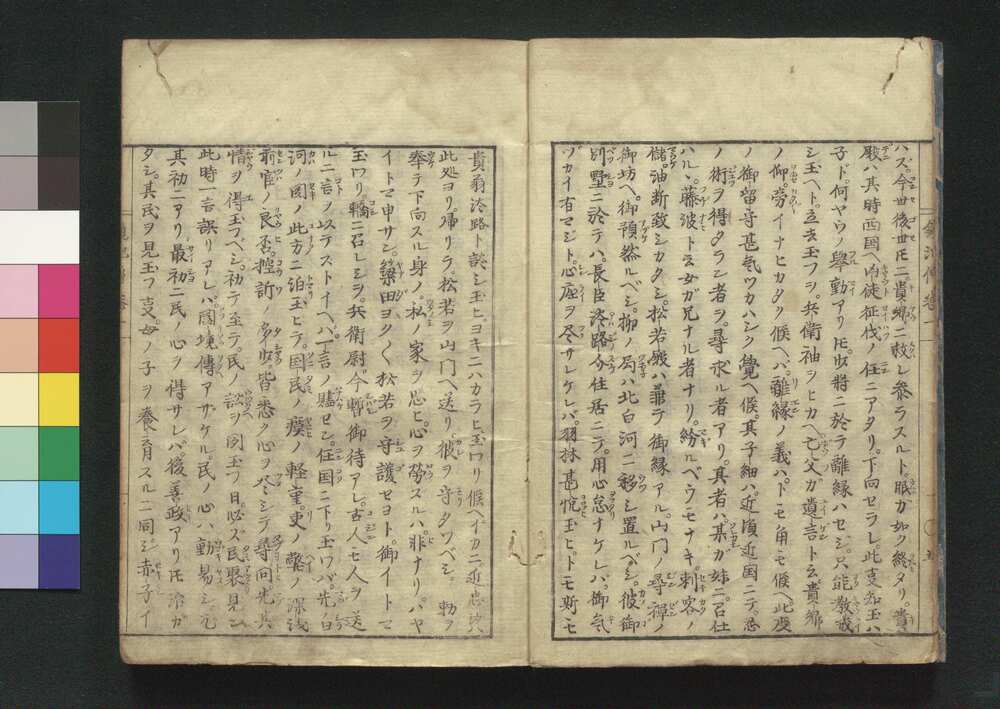 ハズ。今世後世ニ貴郷ニ救レ参ラスルト眠カ如ク終タリ。貴
殿ハ其時西国ヘ向徒征伐ノ任ニアタリ。下向セラレ此叓知玉ハ
子ド。何ヤウノ挙動アリ𪜈。少将ニ於テ離縁ハセジ。只能教戒
シ玉ヘト。立去玉フヲ。兵衛袖ヲヒカヘ亡父ガ遺言ト云貴郷
ノ御旁イナヒカタク候ヘハ。離縁ノ義ハ。トモ角モ候ヘ此度
ノ御留守甚気ヅカハシク覚ヘ候。其子細ハ近頃近国ニテ。忍
ノ術ヲ得タラン者ヲ。尋求ル者アリ。其者ハ。某カ妹ニ召仕
ハル、藤波ト云女ガ兄ナル者ナリ。紛ルベウモナキ。刺客ノ
儲。油断致シカタシ。松若殿ハ兼テ御縁アル。山門ノ尋禅ノ
御坊ヘ。御預然ルベシ。柳ノ局ハ北白河ニ移シ置ルベシ。彼御
別墅ニ於テハ。長臣淡路介住居ニテ。用心怠ナケレハ。御気
ヅカイ有マジト。心底ヲ尽サレケレバ。羽林甚悦玉ヒ。トモ斯モ
貴翁淡路ト談シ玉ヒ。ヨキニハカラヒ玉ワリ候ヘイカニ近忠汝
此処ヨリ帰リテ。松若ヲ山門ヘ送リ彼ヲ守タワベシ。勅ヲ
奉テ下向スル身ノ。私ノ家ヲ思ヒ。心ヲ労スルハ非ナリ。ハヤ
イトマ申サン。簗田ヨクく松若ヲ守護セヨト。御イトマ
玉ワリ轎ニ召レシヲ。兵衛尉今暫御待アレ。古人モ人ヲ送
ルニ言ヲ以テストナヘハ。一言ノ贐セン。任国ニ下リ玉ワバ。先白
河ノ関ノ此方ニ泊玉ヒテ。国民ノ瘼ノ軽重。吏ノ弊ノ深浅
前官ノ良否。控訴ノ多少皆悉ク心ヲ尽シテ尋問。先其
情ヲ得玉フベシ。初テ至テ。民ノ訟ヲ問玉フ日。必ズ民聚見ン
此時一言誤リアレハ。国境傳アザケル。民ノ心ハ動易シ。元
其初ニアリ。最初ニ民ノ心ヲ得サレバ。後善政アリ𪜈治ガ
タシ。其民ヲ見玉フ叓。母ノ子ヲ養育スルニ同ジ赤子イ